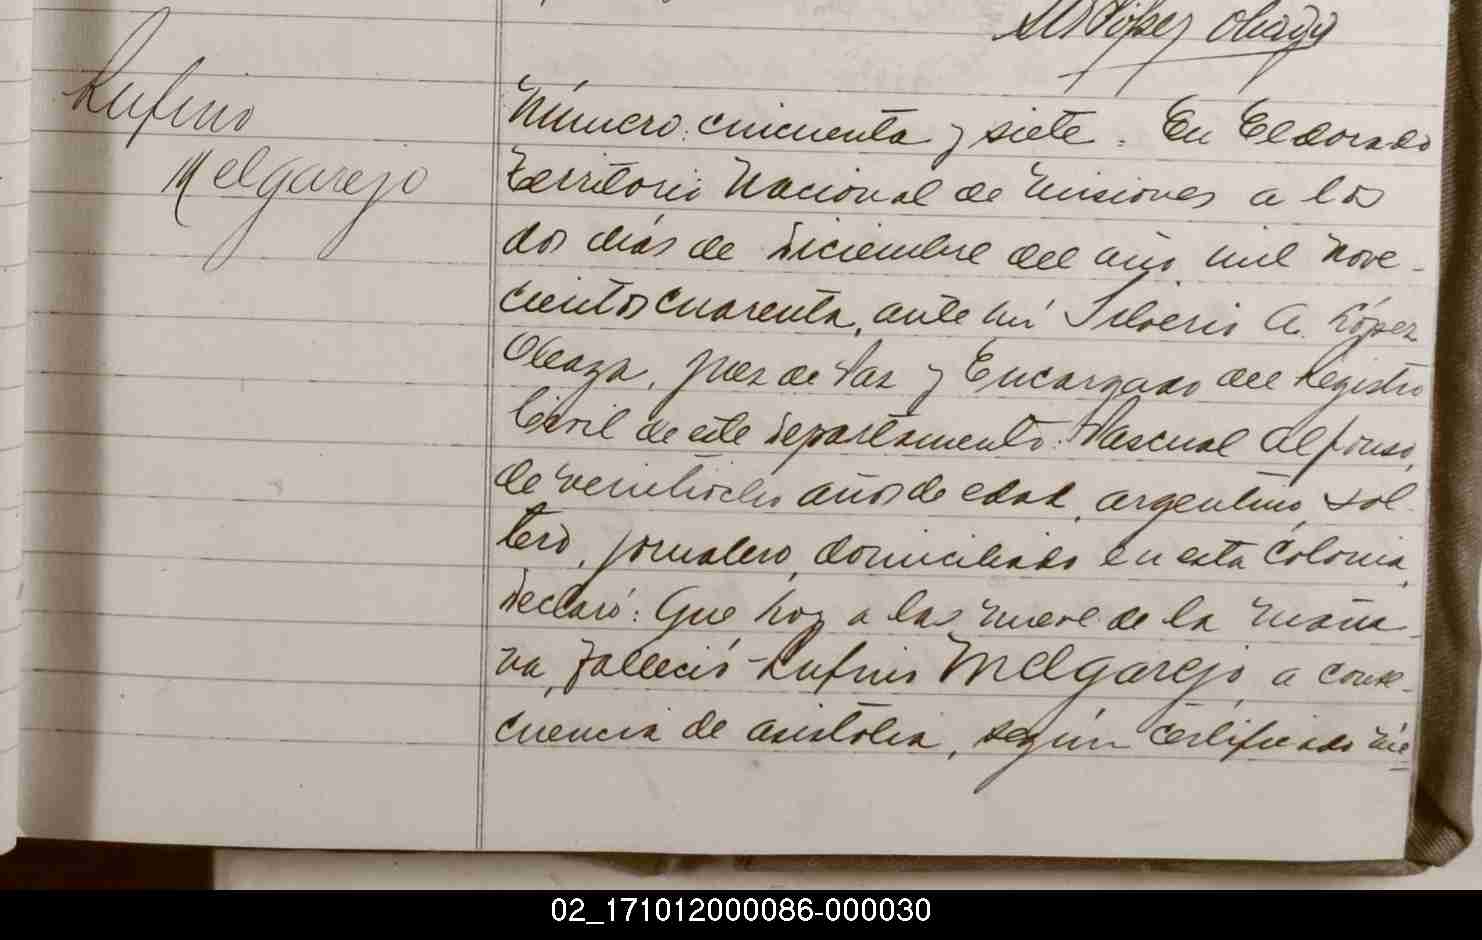 López Oleaga
Rufino
Melgarejo
Número cincuenta y siete. En Eldorado
Territorio Nacional de Misiones a los
dos días de Diciembre del año mil nove-
cientos cuarenta, ante mí Silverio A. López
Oleaga, Juez de Paz y Encargado del Registro
Civil de este Departamento: Pascual Alfonso,
de veintiocho años de edad, argentino, sol-
tero, jornalero, domiciliado en esta Colonia,
Declaró: Que hoy a las nueve de la maña-
na, falleció Rufino Melgarejo, a conse-
cuencia de asistolia, según certificado mé-
02_171012000086-000030